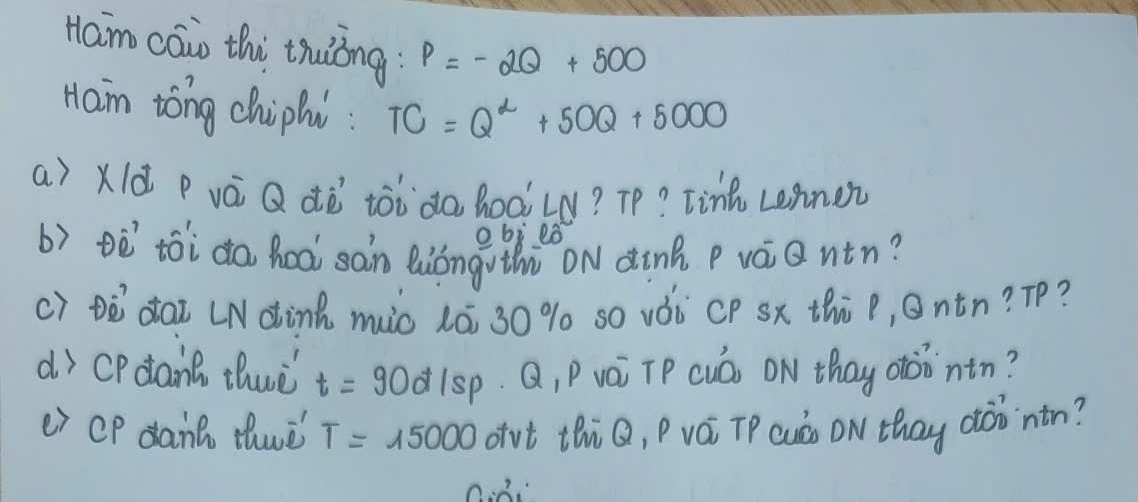 Hàm cầu thị trường : P = - 2Q + 500
Hàm tổng chi phí : TC = Q² + 50Q + 5000
a> X/đ P và Q để tối đa hoá LN ? TP ? Tính Lerner
b> Để tối đa hoá sản lượng o bị lỗ thì DN định P và Q ntn ?
c> Để đạt LN định mức là 30% so với CP sx thì P, Q ntn ? TP ?
d> CP đánh thuế t = 90đ/sp . Q, P và TP của DN thay đổi ntn ?
e> CP đánh thuế T = 15000 đvt thì Q, P và TP của DN thay đổi ntn ?
Giải